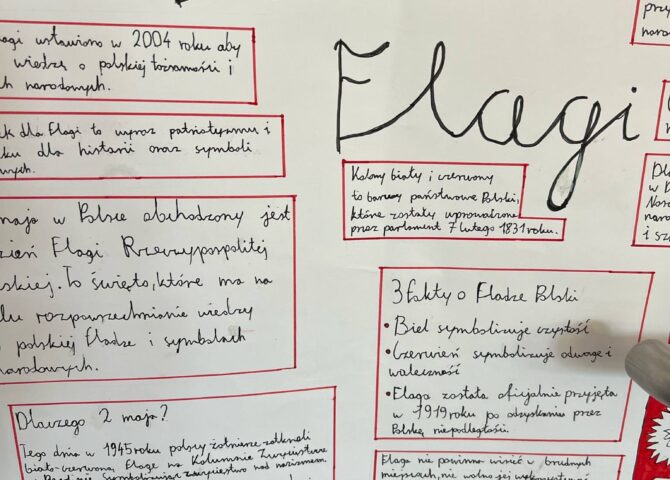 Flagi
agi ustawiono w 2004 roku aby
wiedzą o polskiej tożsamości i
ch narodowych.
ek dla Flagi to wyraz patriotyzmu i
ku dla historii oraz symboli
wych.
maja w Polsce obchodzony jest
zień Flagi Rzeczypospolitej
skiej. To święto, które ma na
lu rozpowszechnianie wiedzy
polskiej fladze i symbolach
narodowych.
Dlaczego 2 maja?
Tego dnia w 1945 roku polscy żołnierze zatknęli
biało-czerwoną flagę na Kolumnie Zwycięstwa
Symbolizując zwycięstwo nad nazizmem
Kolory biały i czerwony
to barwy państwowe Polski,
które zostały wprowadzone
przez parlament 7 lutego 1831 roku.
3 fakty o Fladze Polski
• Biel symbolizuje czystość
• Czerwień symbolizuje odwagę i
waleczność
• Flaga została oficjalnie przyjęta
w 1919 roku po odzyskaniu przez
Polskę niepodległości.
Flaga nie powinna wisieć w brudnych
miejscach, nie wolno jej wykorzystywać
prz
naro
w
i sz